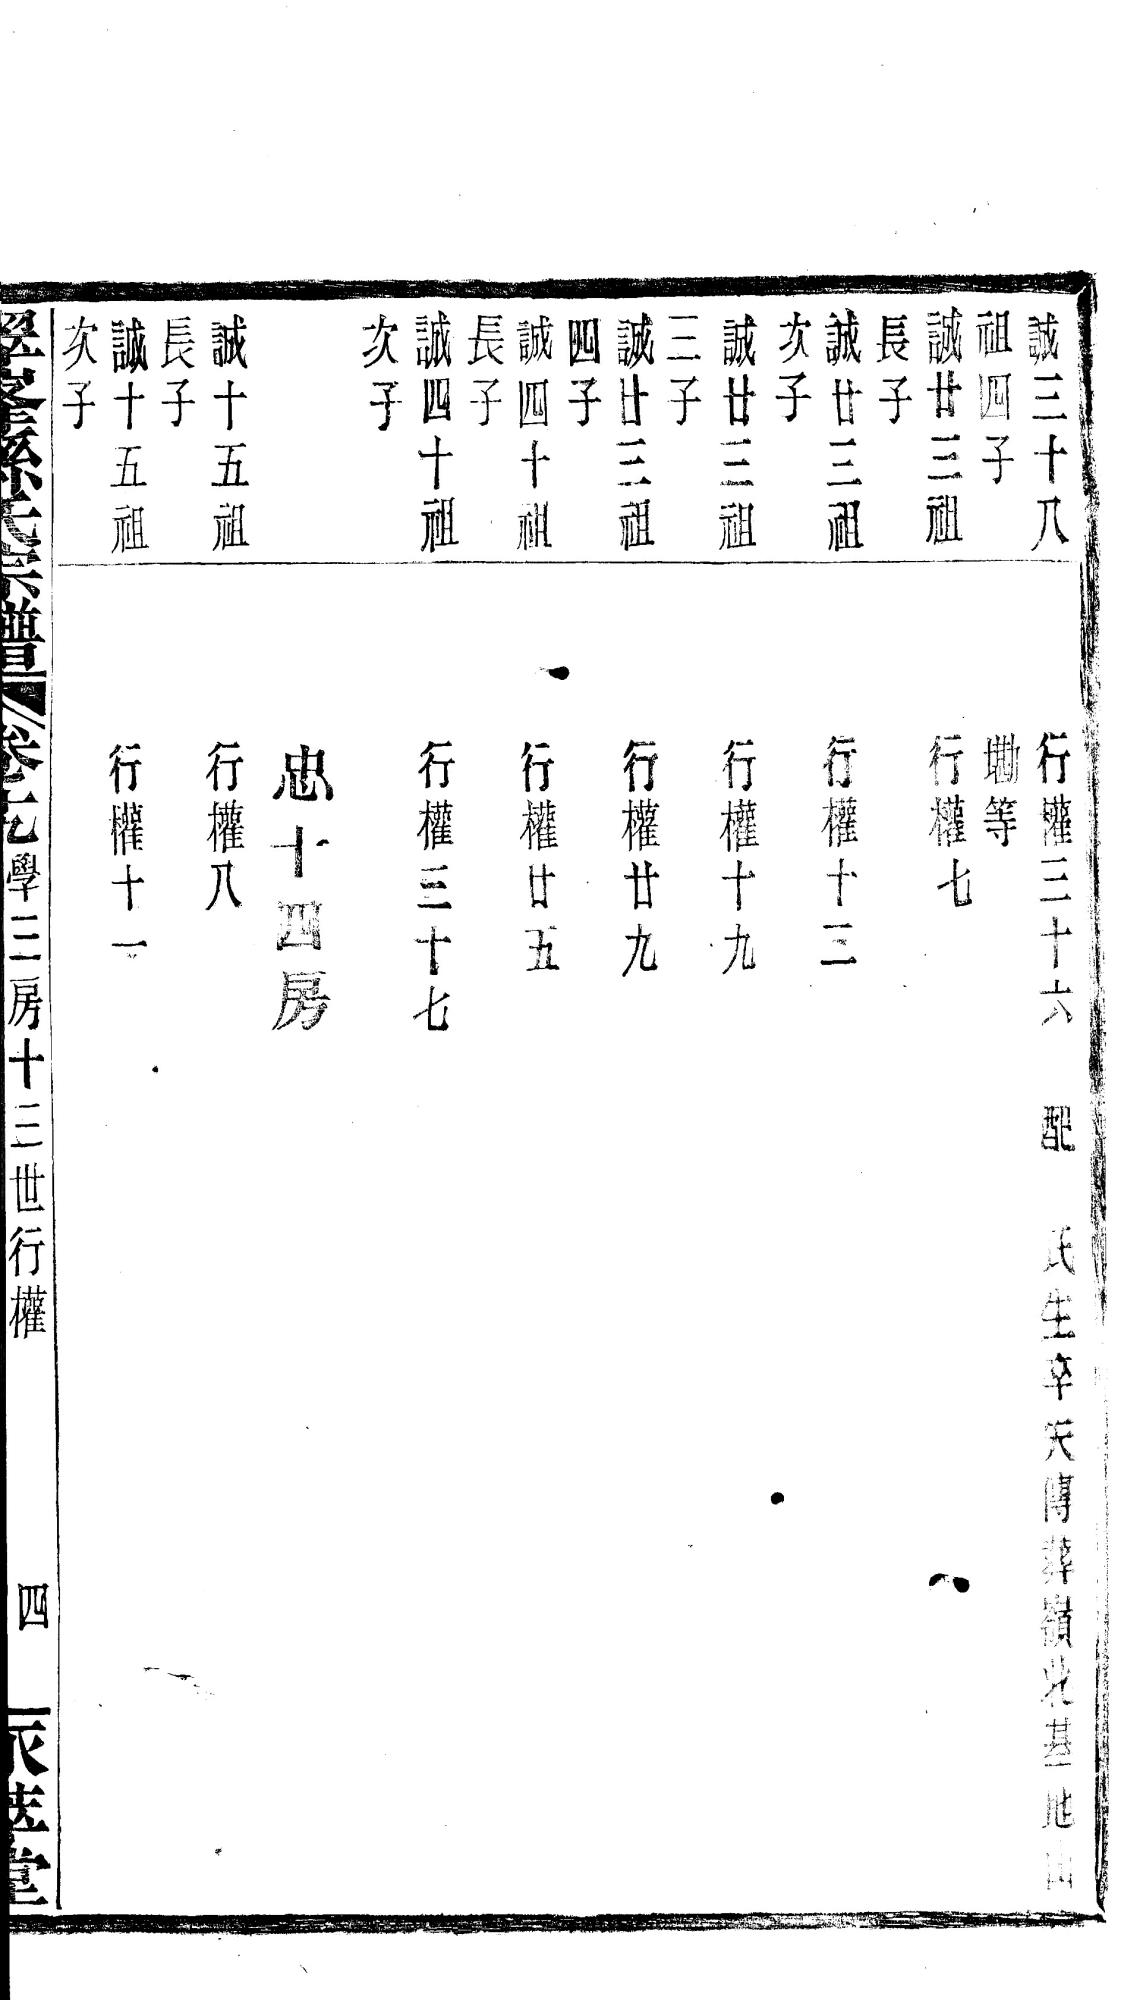 誠三十八
祖四子
行權三十六 配 氏生卒失傳葬嶺北基地山
墈等
誠廿三祖
長子
行權七
誠廿三祖
次子
行權十三
誠廿三祖
三子
行權十九
誠廿三祖
四子
行權廿九
誠四十祖
長子
行權廿五
誠四十祖
次子
行權三十七
忠十四房
誠十五祖
長子
行權八
誠十五祖
次子
行權十一
孫氏宗譜 卷 學三房十三世行權 四 堂